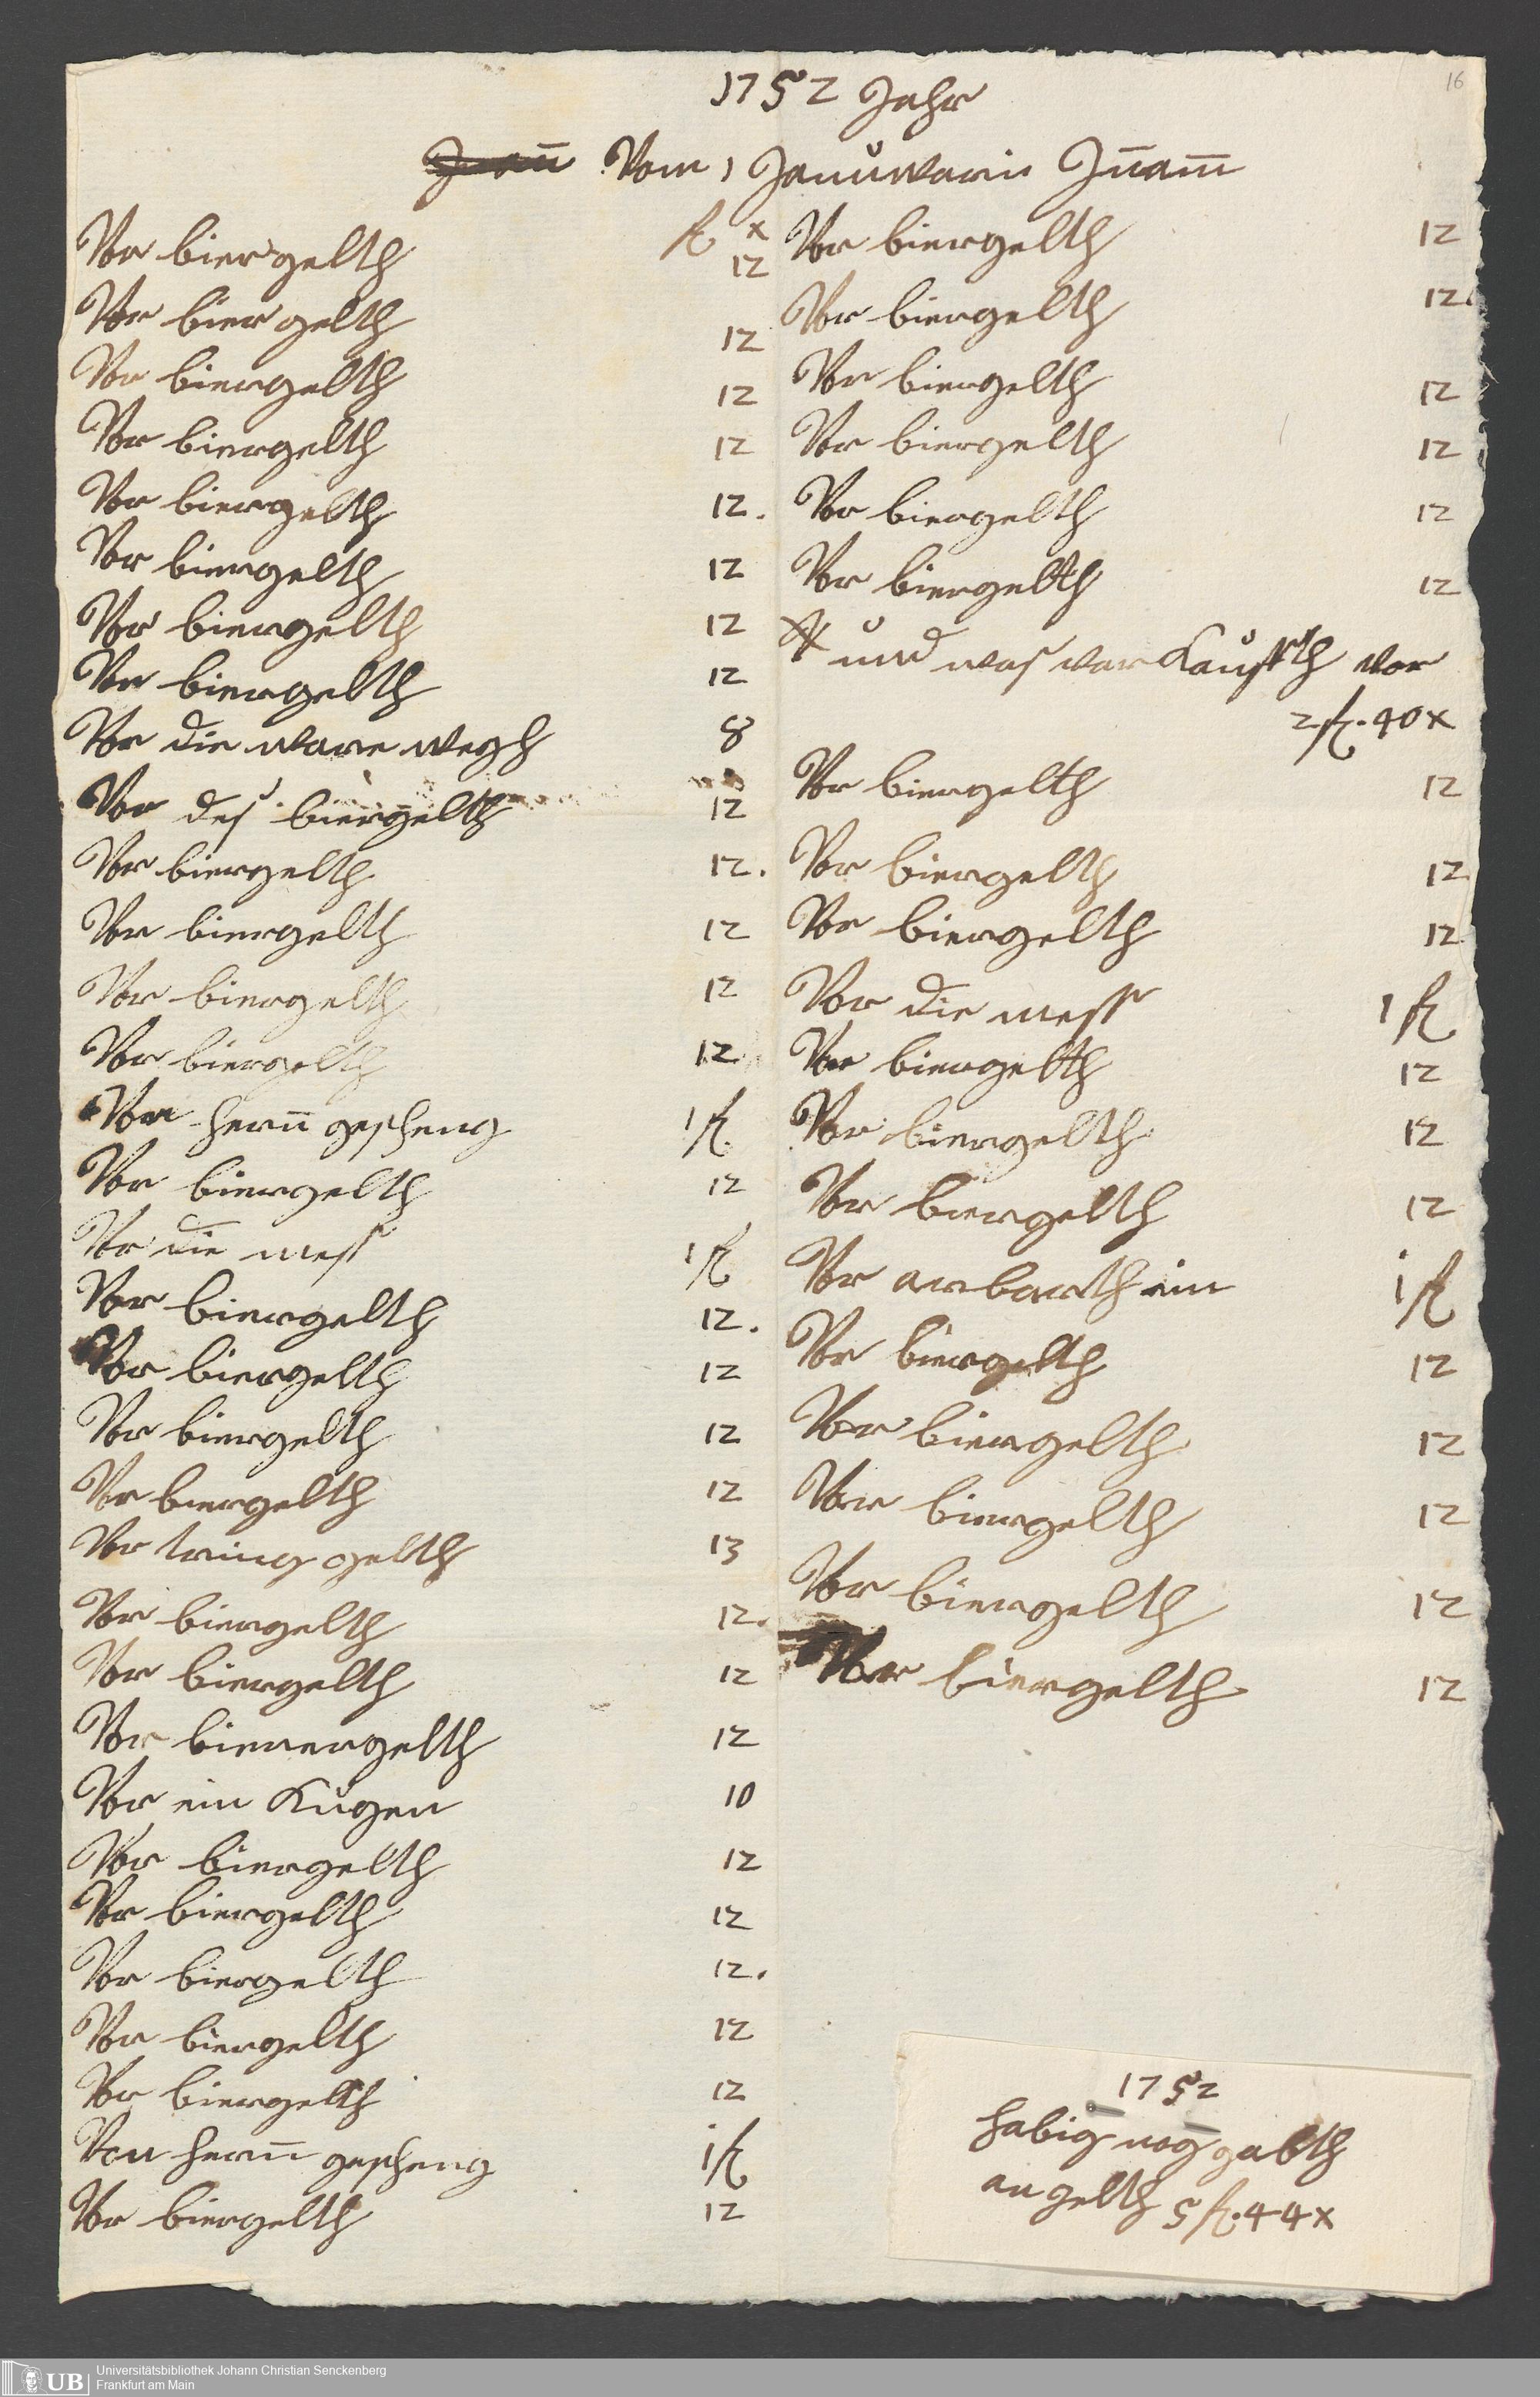 16
1752 Jahr
Vom 1 Januwarii Jn̄am̄
fl x
Vor bier gelth 12
Vor bier gelth 12
Vor biergelth 12
Vor biergelth 12
Vor biergelth 12.
Vor biergelth 12
Vor biergelth 12
Vor biergelth 12
Vor die ware wegh 8
Vor des biergelth 12
Vor biergelth 12.
Vor biergelth 12
Vor biergelth 12
Vor biergelth 12
Vom hern̄ gescheng 1 fl.
Vor biergelth 12
Vor die mess 1 fl
Vor biergelth 12.
Vor biergelth 12
Vor biergelth 12
Vor biergelth 12
Vor tring gelth 13
Vor biergelth 12.
Vor biergelth 12
Vor bierergelth 12
Vor ein Kugen 10
Vor biergelth 12
Vor biergelth 12
Vor biergelth 12.
Vor biergelth 12
Vor biergelth 12
Von hern̄ gescheng 1 fl
Vor biergelth 12
Vor biergelth 12
Vor biergelth 12.
Vor biergelth 12
Vor biergelth 12
Vor biergelth 12
Vor biergelth 12
und was var Kaufth vor
2 fl. 40 x
Vor biergelth 12
Vor biergelth 12
Vor biergelth 12
Vor die mess 1 fl
Vor biergelth 12
Vor biergelth 12
Vor biergelth 12
Vor arbarth ein 1 fl
Vor biergelth 12
Vor biergelth 12
Vor biergelth 12
Vor biergelth 12
Vor biergelth 12
1752
habig nog gabth
an gelth 5 fl. 44 x
UB
Universitätsbibliothek Johann Christian Senckenberg
Frankfurt am Main